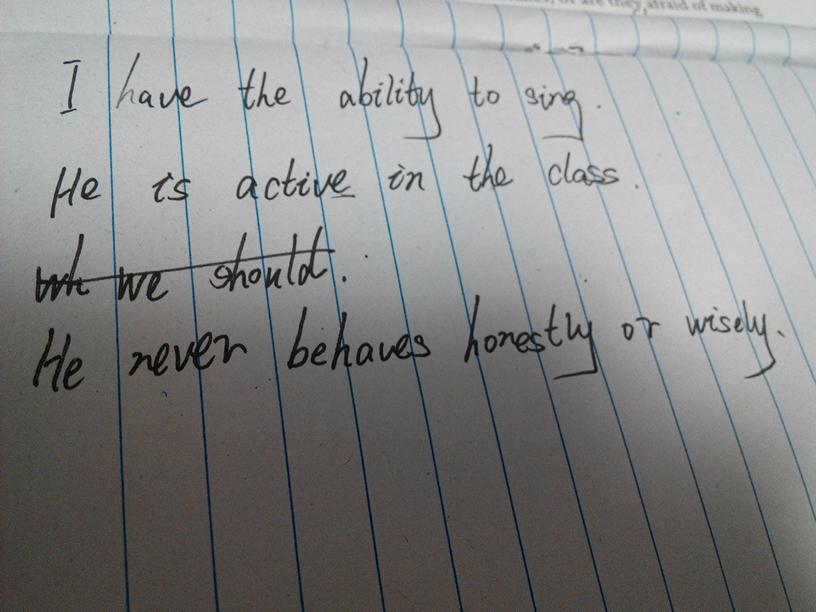 or are they afraid of making
I have the ability to sing.
He is active in the class.
we should.
He never behaves honestly or wisely.